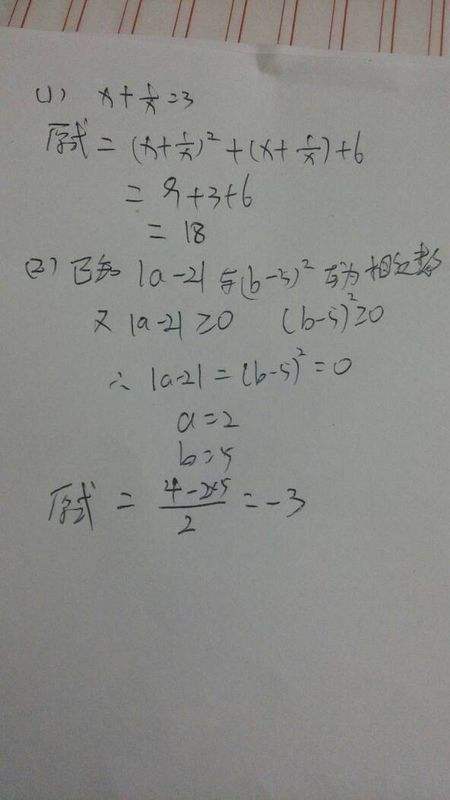 (1) x+1/x=3
原式=(x+1/x)²+(x+1/x)+6
=9+3+6
=18
(2) 已知 |a-2| 与(b-5)² 互为相反数
又 |a-2|≥0 (b-5)²≥0
∴ |a-2|=(b-5)²=0
a=2
b=5
原式 = (4-2×5)/2 =-3